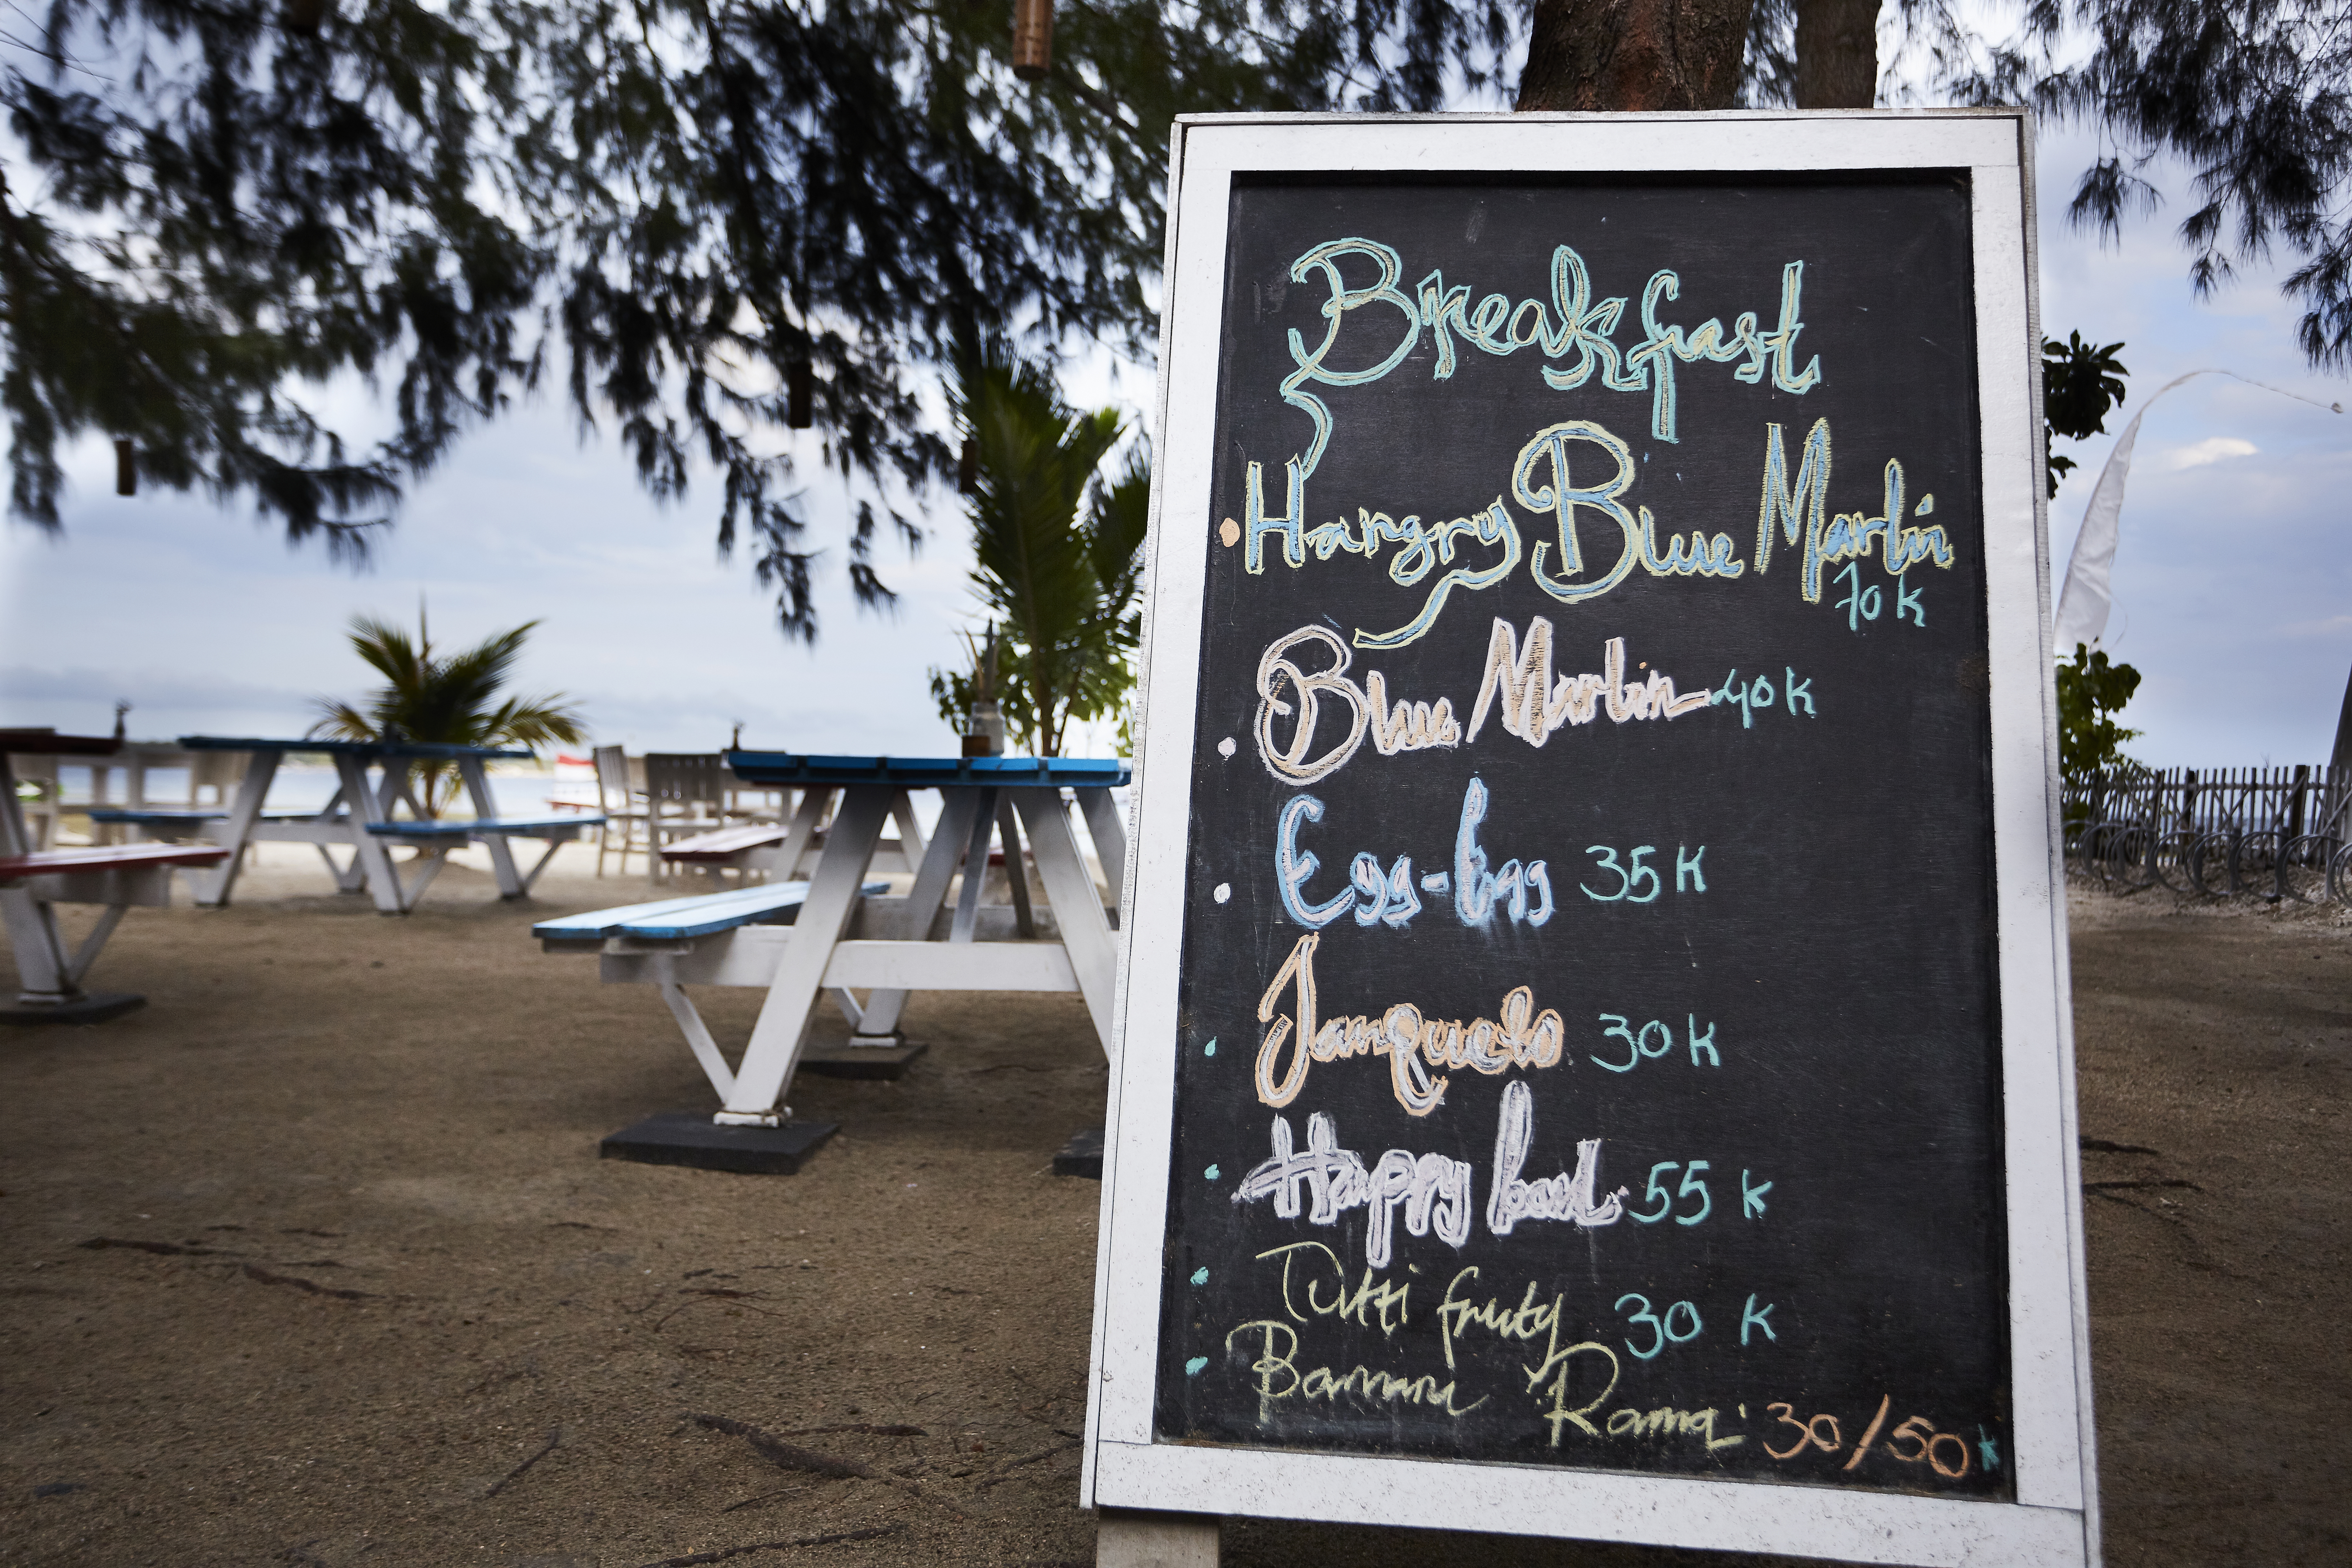 Breakfast
Hangry Blue Marlin
70 k
Blue Marlin 40 k
Egg-Egg 35 k
Janquelo 30 k
Happy bowl 55 k
Tutti fruty 30 k
Banana Rama 30/50 k